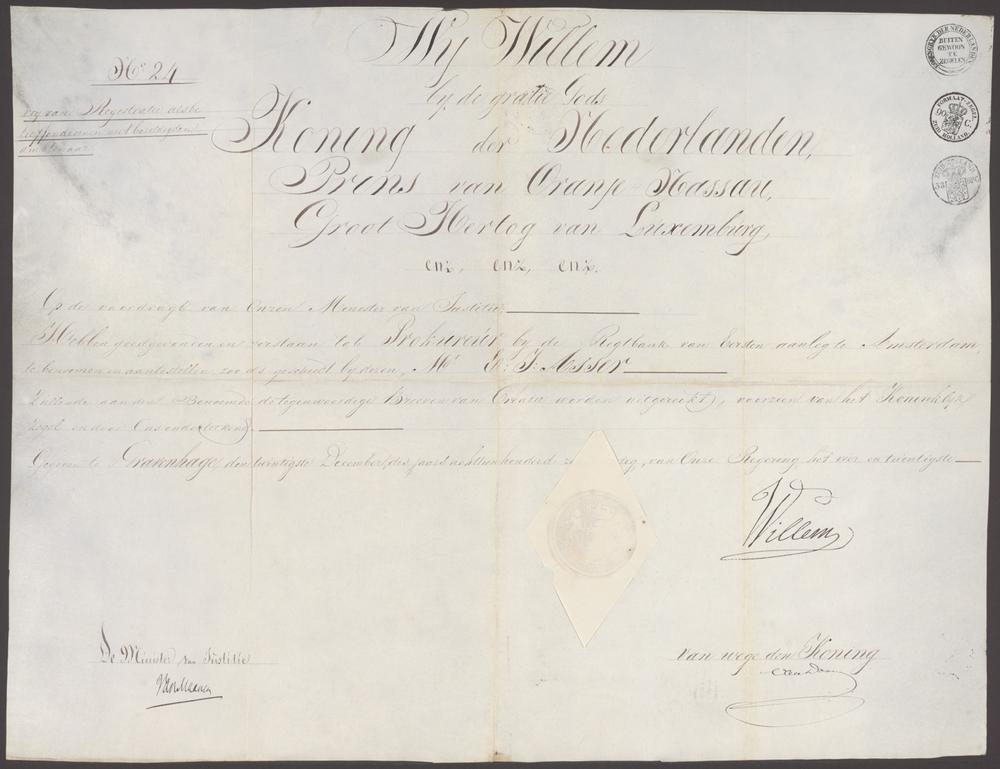 Wij Willem
bij de gratie Gods
Koning der Nederlanden,
Prins van Oranje-Nassau,
Groot Hertog van Luxemburg,
enz, enz, enz.
No 24
vrij van Registratie als be
treffende
Op de voordragt van Onzen Minister van Justitie,
Hebben goedgevonden en verstaan tot Prokureur bij de Regtbank van Eersten aanleg te Amsterdam,
te benoemen en aantestellen, zoo als geschiedt bij dezen, Mr E: J: Asser
Zullende aan den Benoemde de tegenwoordige Brieven van Creatie worden uitgereikt, voorzien van het Koninklijk
zegel en door Ons onderteekend.
Gegeven te 's Gravenhage, den twintigste December, des jaars achttienhonderd, van Onze Regering het vier en twintigste
Willem
De Minister van Justitie
Van Maanen
van wege den Koning
KONINGRYK DER NEDERLANDEN
BUITEN
GEWOON
TE
ZEGELEN
FORMAAT ZEGEL
90 C.
HOLLAND